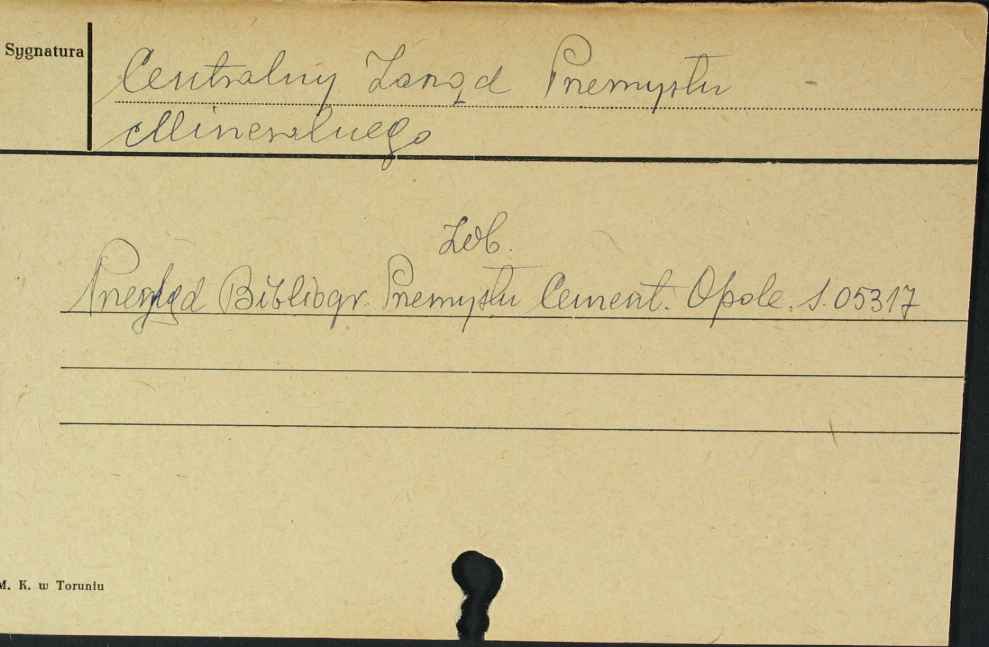 Sygnatura
Centralny Zarząd Przemysłu -
Mineralnego
Zob.
Przegląd Bibliogr. Przemysłu Cement. Opole. S. 05317
M. K. w Toruniu